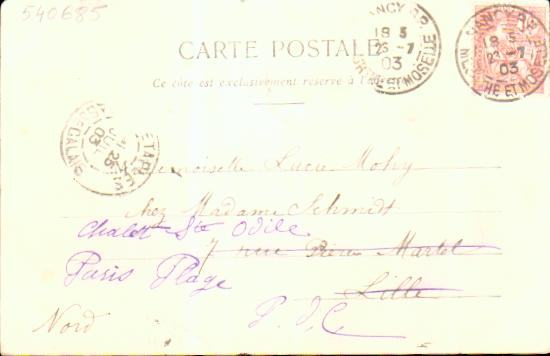 540685
CARTE POSTALE
Ce côté est exclusivement réservé à l'adresse
NANCY
18 5
23 -7
03
MEURTHE ET MOSELLE
NANCY
18 5
23 -7
03
MEURTHE ET MOSELLE
ETAPLES
25
JUIL
03
PAS-DE-CALAIS
Mademoiselle Lucie Mohy
chez Madame Schmidt
Chalet Ste Odile
7 rue Pierre Martel
Paris Plage
Lille
Nord
P. d. C.